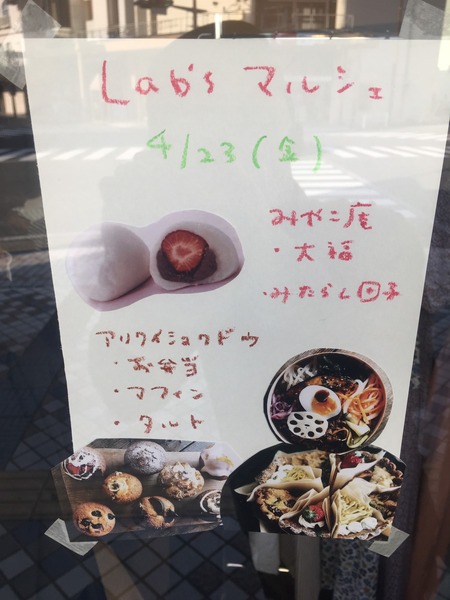 Lab's マルシェ
4/23(金)
みやこ庵
・大福
・みたらし団子
アリクイショクドウ
・お弁当
・マフィン
・タルト